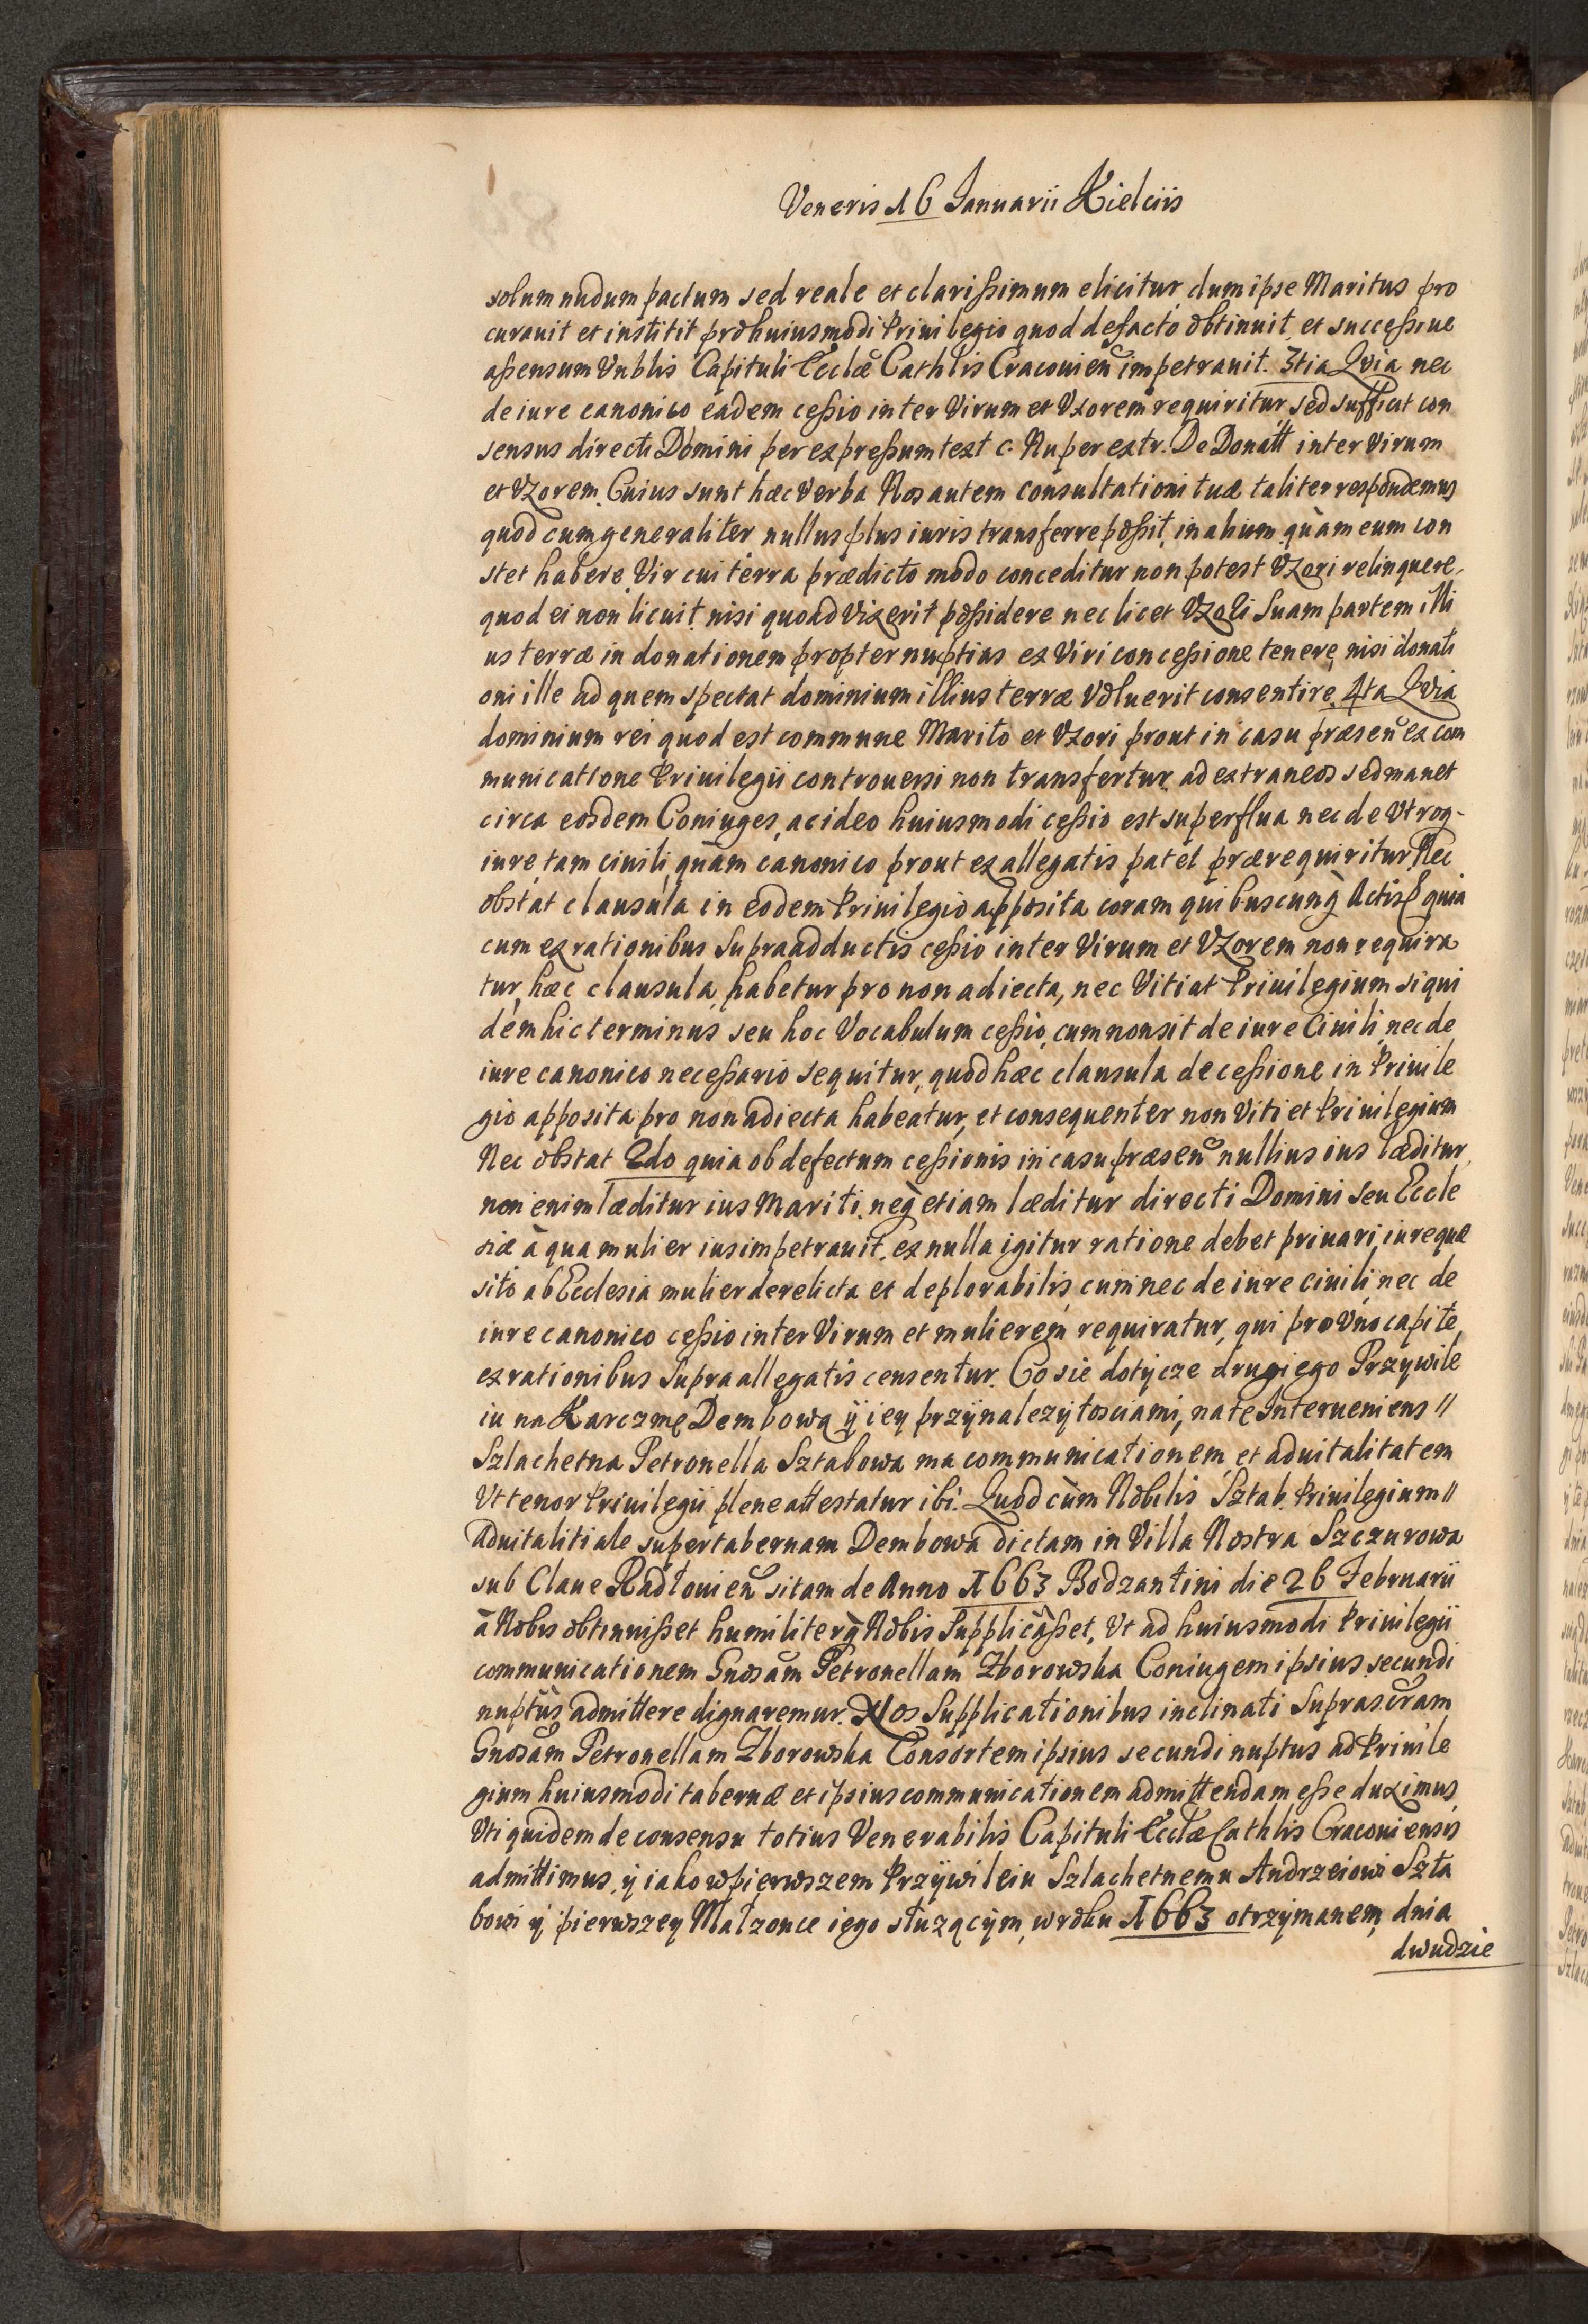 Veneris 16 Ianuarii Kielciis
solum nudum pactum sed reale et clarißimum elicitur, dum ipse Maritus pro
curauit et institit pro huiusmodi Priuilegio quod defacto obtinuit et succeßiue
aßensum Vnblis Capituli Ecclæ Cathlis Cracouien impetrauit. 3tia Qvia nec
de iure canonico eadem ceßio inter Virum et Vxorem requiritur, sed sufficit con
sensus directi Domini per expreßum text c. Nuper extr. De Donatt inter Virum
et Vxorem. Cuius sunt hæc Verba Nos autem consultationi tuæ taliter respondemus
quod cum generaliter nullus plus iuris transferre poßit, in alium quàm eum con
stet habere, Vir cui terra prædicto modo conceditur non potest Vxori relinquere,
quod ei non licuit, nisi quoad Vixerit poßidere nec licet Vxori suam partem illi
us terræ in donationem propter nuptias ex Viri conceßione tenere, nisi donati
oni ille ad quem spectat dominium illius terræ Voluerit consentire. 4ta Qvia
dominium rei quod est commune Marito et Vxori prout in casu præsen ex com
municatione Priuilegii controuersi non transfertur ad extraneos sed manet
circa eosdem Coniuges, ac ideo huiusmodi ceßio est superflua nec de Vtroq
iure, tam ciuili, quàm canonico prout ex allegatis patet prærequiritur, Nec
obstat clausula in eodem Priuilegio apposita coram quibuscunq Actis quia
cum ex rationibus supra adductis ceßio inter Virum et Vxorem non requira
tur, hæc clausula, habetur pro non adiecta, nec Vitiat Priuilegium siqui
dem hic terminus seu hoc Vocabulum ceßio, cum non sit de iure Ciuili, nec de
iure canonico neceßario sequitur, quod hæc clausula de ceßione in Priuile
gio apposita pro non adiecta habeatur, et consequenter non Vitiet Priuilegium
Nec obstat 2do quia ob defectum ceßionis in casu præsen nullius ius læditur,
non enim læditur ius Mariti, neq etiam læditur directi Domini seu Eccle
siæ à qua mulier ius impetrauit, ex nulla igitur ratione debet priuari, iure quæ
sito ab Ecclesia mulier derelicta et deplorabilis, cum nec de iure ciuili, nec de
iure canonico ceßio inter Virum et mulierem requiratur, qui pro Vno capite,
ex rationibus supra allegatis censentur. Co sie dotycze drugiego Przywile
iu na Karczmę Dembową ÿ iey przÿnalezÿtosciami, na te Interueniens //
Szlachetna Petronella Sztabowa ma communicationem et aduitalitatem
Vt tenor Priuilegii plene attestatur ibi. Quod cùm Nobilis Sztab. Priuilegium //
Aduitalitiale super tabernam Dembowa dictam in Villa Nostra Szczurowa
sub Claue Radłouien sitam de Anno 1663 Bodzantini die 26 Februarii
à Nobis obtinuißet humiliter à Nobis supplicaßet, Vt ad huiusmodi Priuilegii
communicationem Gnosam Petronellam Zborowska Coniugem ipsius secundi
nuptus admittere dignaremur. Nos supplicationibus inclinati suprascram
Gnosam Petronellam Zborowska Consortem ipsius secundi nuptus ad Priuile
gium huiusmodi tabernæ et ipsius communicationem admittendam eße duximus
Vti quidem de consensu totius Venerabilis Capituli Ecclæ Cathlis Cracouiensis
admittimus, ÿ iako w pierwszem Przÿwileiu Szlachetnemu Andrzeiowi Szta
bowi ÿ pierwszey Małzonce iego słuzącÿm, w roku 1663 otrzÿmanem, dnia
dwudzie